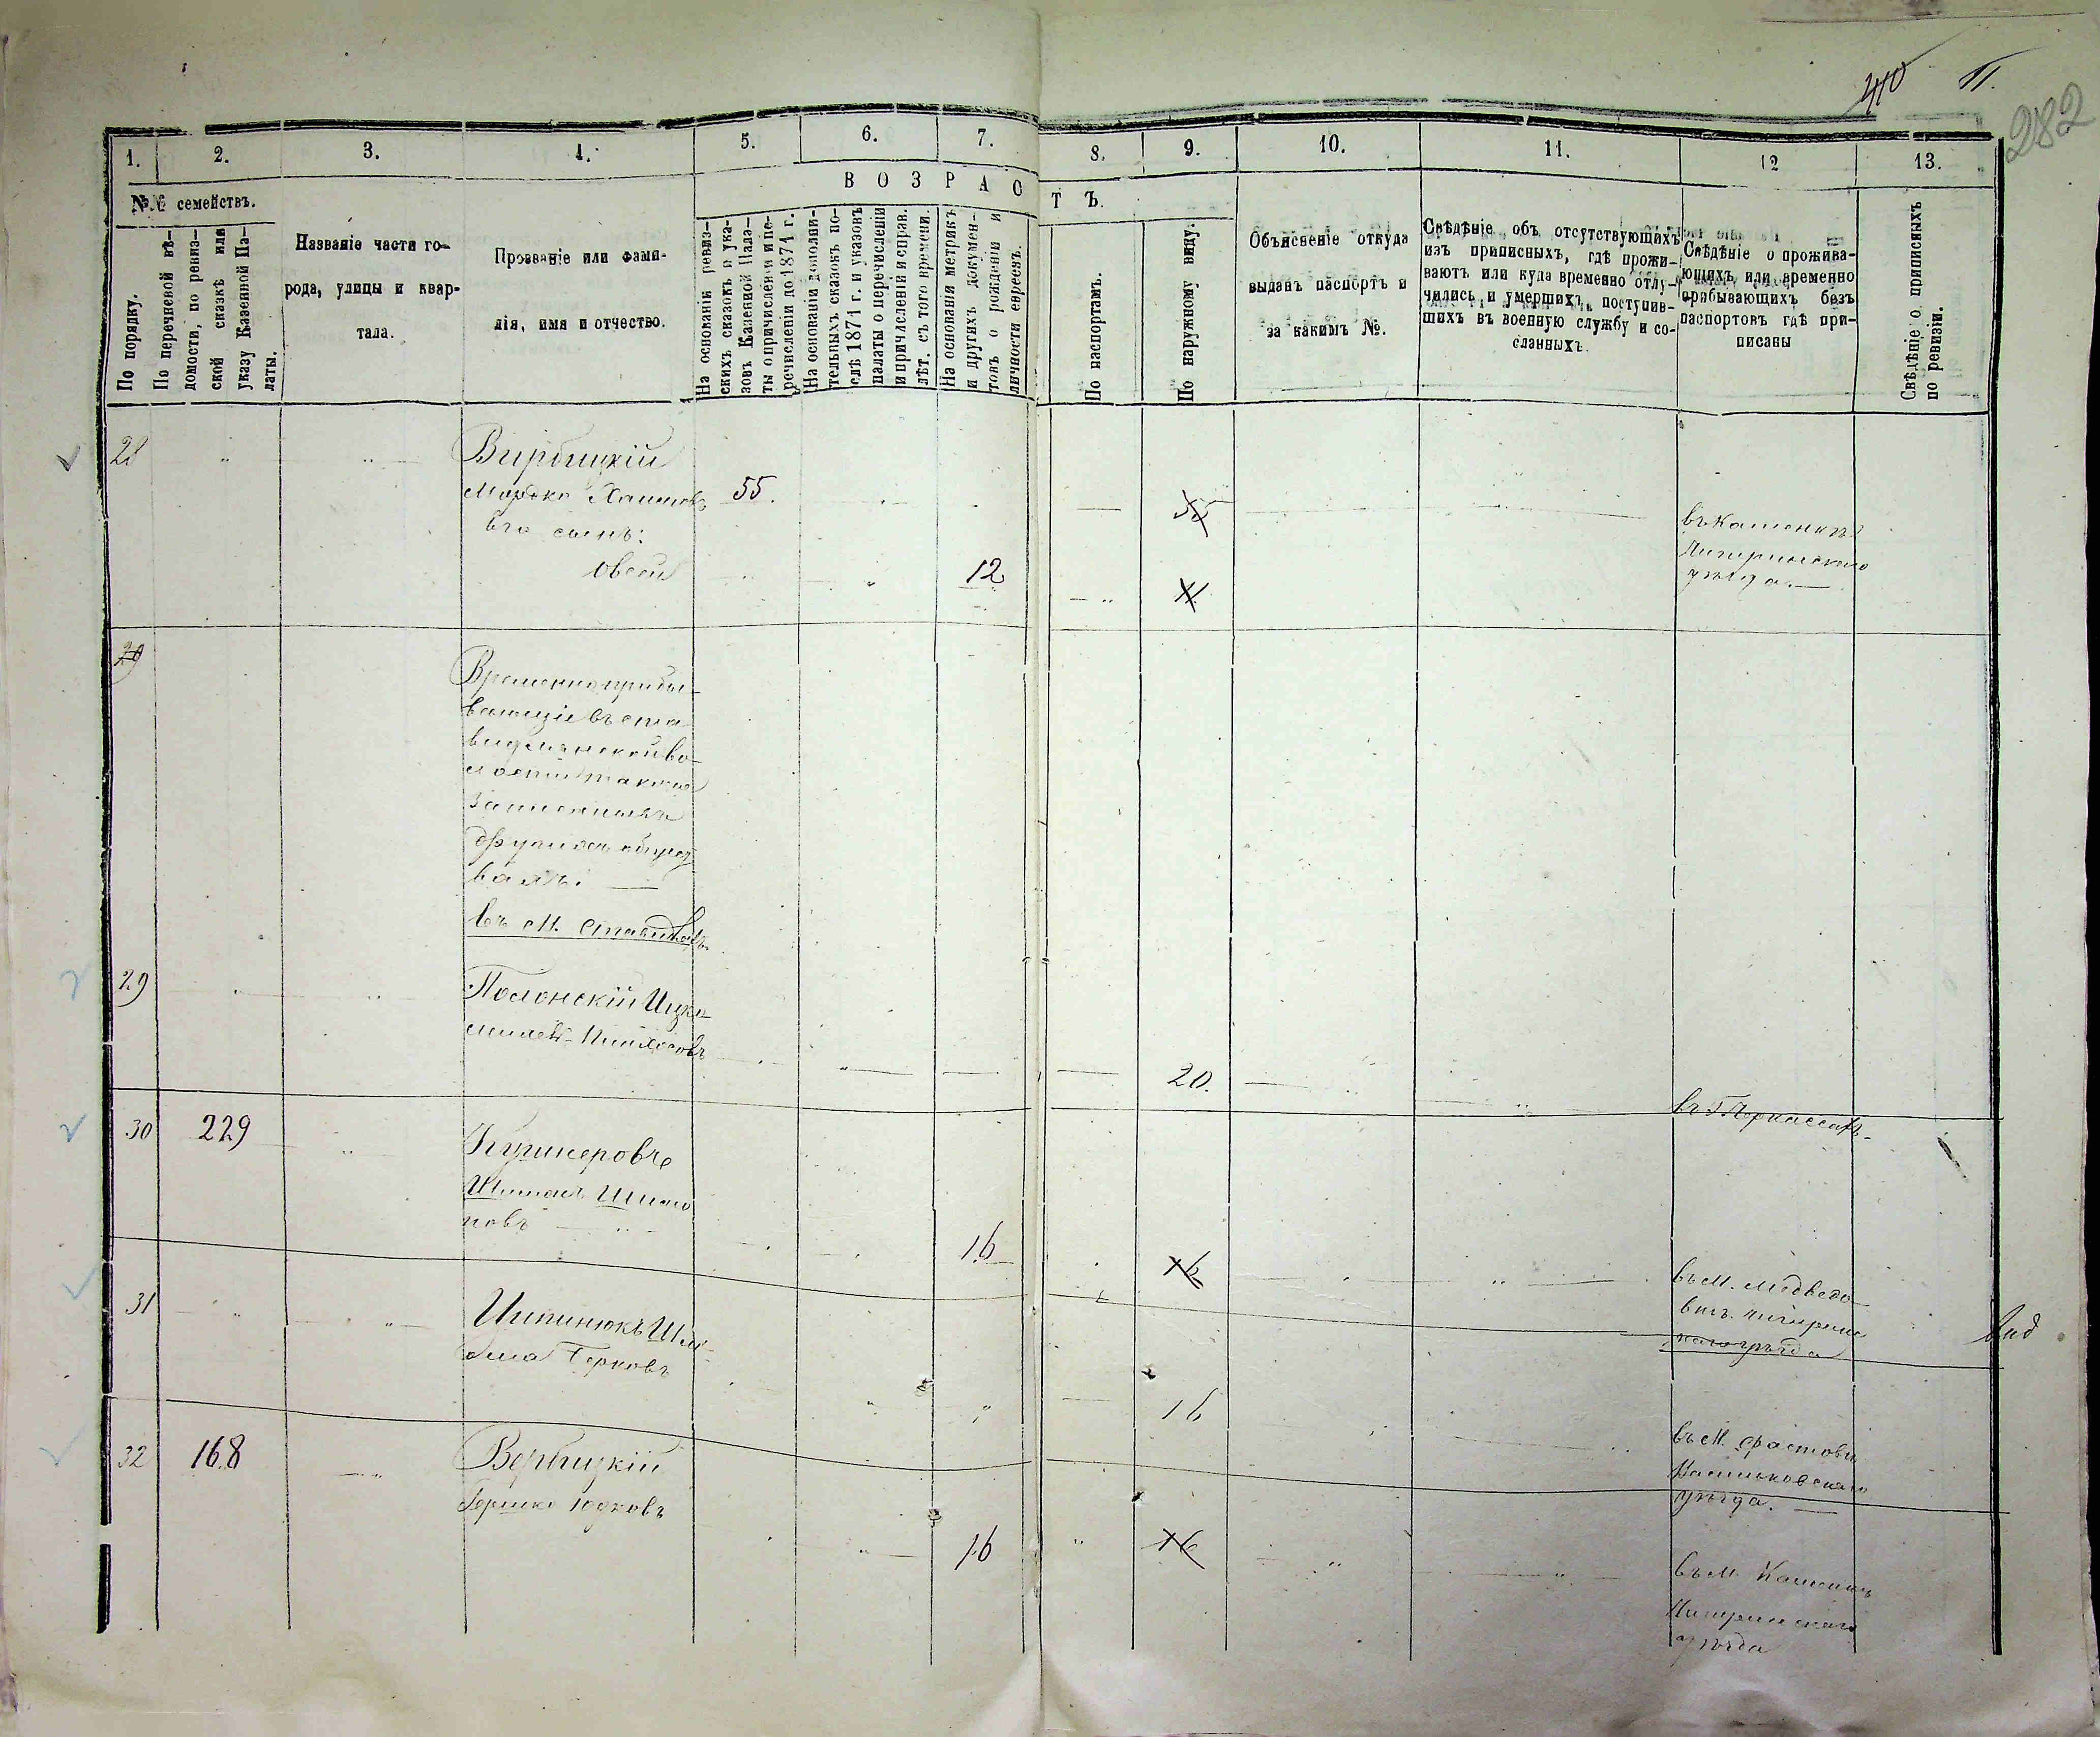 410 11.
282
1. 2. 3. 4. 5. 6. 7. 8. 9. 10. 11. 12 13.
№№ семействъ.
По порядку.
По перечневой вѣ-
домости, по ревиз-
ской сказкѣ или
указу Казенной Па-
латы.
Названіе части го-
рода, улицы и квар-
тала.
Прозваніе или фами-
лія, имя и отчество.
ВОЗРАСТЪ.
На основаніи ревиз-
скихъ сказокъ и ука-
зовъ Казенной Пала-
ты о причисленіи и пе-
речисленіи до 1871 г.
На основаніи дополни-
тельныхъ сказокъ по-
слѣ 1871 г. и указовъ
палаты о перечисленіи
и причисленіи и справ.
лѣт. съ того времени.
На основаніи метрикъ
и другихъ докумен-
товъ о рожденіи и
личности евреевъ.
По паспортамъ.
По наружному виду.
Объясненіе откуда
выданъ паспортъ и
за какимъ №.
Свѣдѣніе объ отсутствующихъ
изъ приписныхъ, гдѣ прожи-
ваютъ или куда временно отлу-
чились, и умершихъ, поступив-
шихъ въ военную службу и со-
сланныхъ.
Свѣдѣніе о прожива-
ющихъ или временно
прибывающихъ безъ
паспортовъ гдѣ при-
писаны
Свѣдѣніе о приписныхъ
по ревизіи.
28
Вирбицкій
Мордко Хаимовъ 55. 55
въ Каменкѣ
Чигиринскаго
уѣзда.
Его сынъ:
Овсей 12
29
Временно прибы-
вающіе въ Ста
видлянской во-
лости также
записанныхъ
другихъ общест
вахъ.
въ М. Ставидлахъ
29
Полонскій Ицко
Пинхосовъ
20.
въ Г. Черкассахъ
30 229
Кушнеровъ
Шимонъ Шимо
новъ
16 16
въ М. Медведо
вкѣ Чигирин
скаго уѣзда
31
Ципинюкъ Шлі
ома Берковъ
16
въ М. Фастовѣ
Васильковскаго
уѣзда.
32 168
Вербицкій
Гершко Юдковъ
16 16
въ М. Каменкѣ
Чигиринскаго
уѣзда